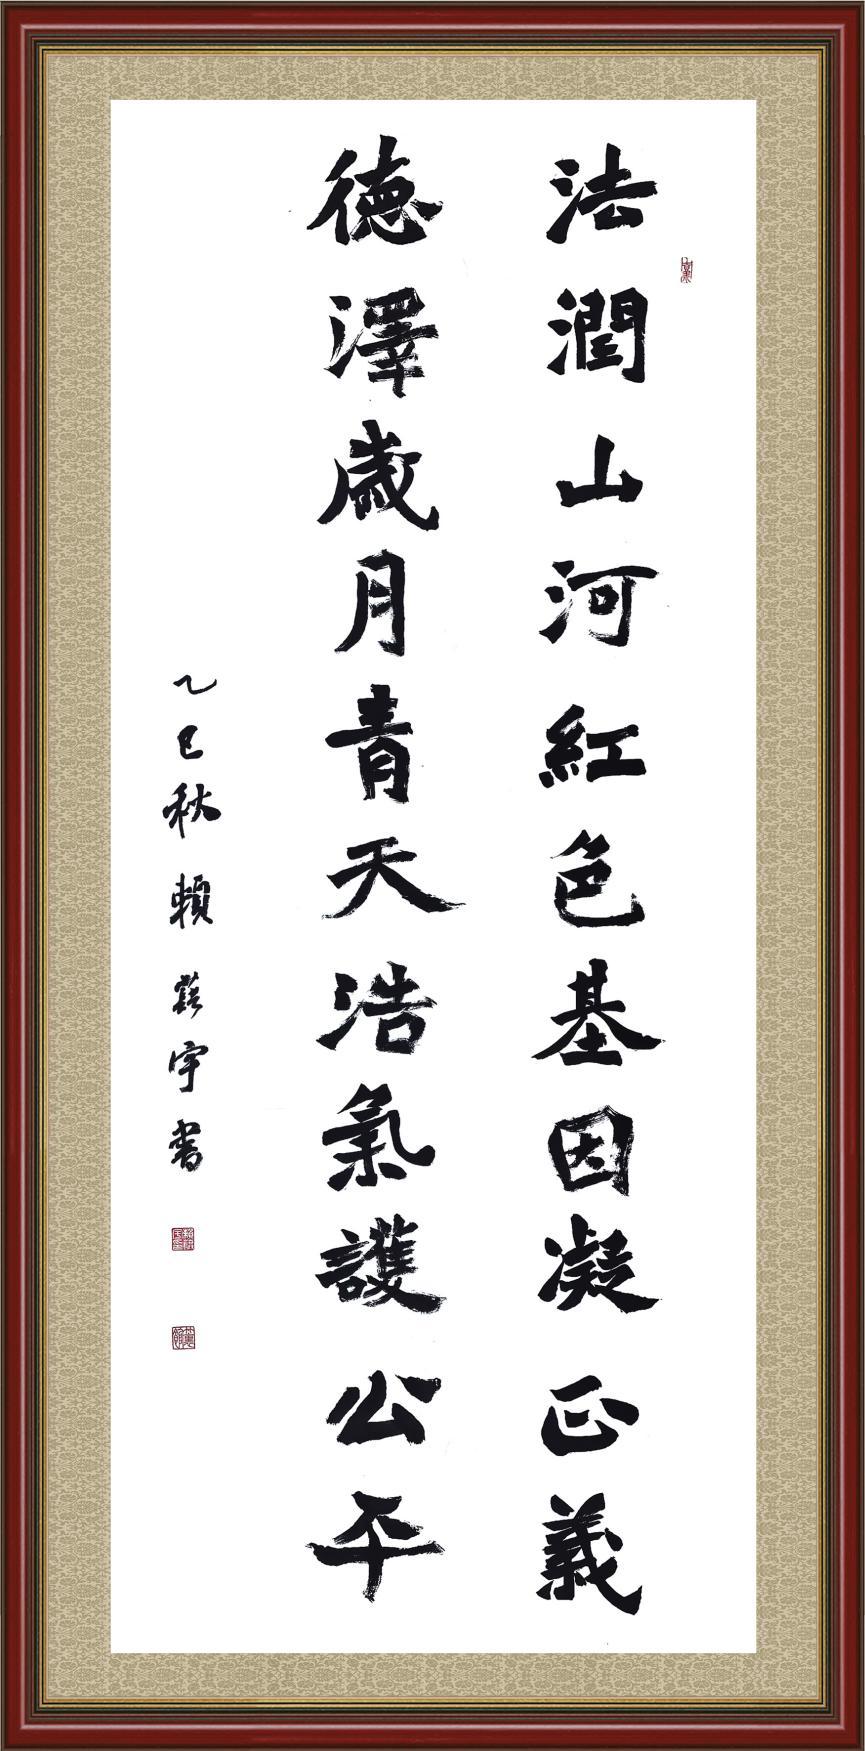 法潤山河紅色基因凝正義
德澤歲月青天浩氣護公平
乙巳秋賴宇書